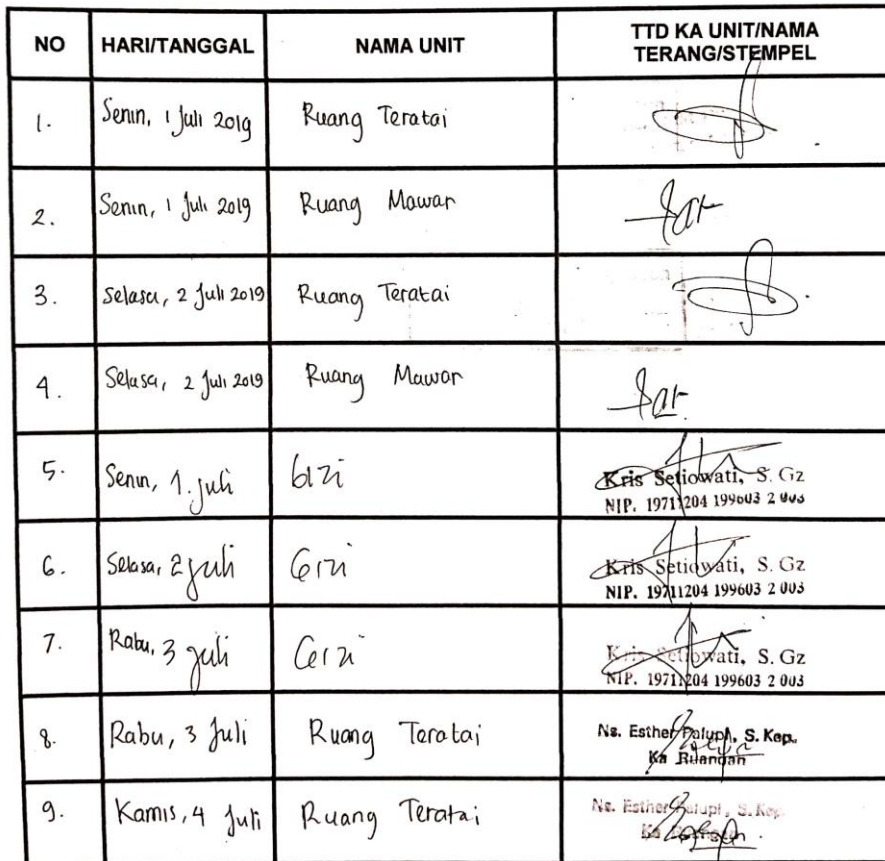 NO HARI/TANGGAL NAMA UNIT TTD KA UNIT/NAMA
TERANG/STEMPEL
1. Senin, 1 Juli 2019 Ruang Teratai
2. Senin, 1 Juli 2019 Ruang Mawar
3. Selasa, 2 Juli 2019 Ruang Teratai
4. Selasa, 2 Juli 2019 Ruang Mawar
5. Senin, 1. Juli Gizi Kris Setiowati, S. Gz
NIP. 19711204 199603 2 003
6. Selasa, 2 Juli Gizi Kris Setiowati, S. Gz
NIP. 19711204 199603 2 003
7. Rabu, 3 Juli Gizi Kris Setiowati, S. Gz
NIP. 19711204 199603 2 003
8. Rabu, 3 Juli Ruang Teratai Ns. Esther Palupi, S. Kep.
Ka Ruangan
9. Kamis, 4 Juli Ruang Teratai Ns. Esther Palupi, S. Kep.
Ka Ruangan